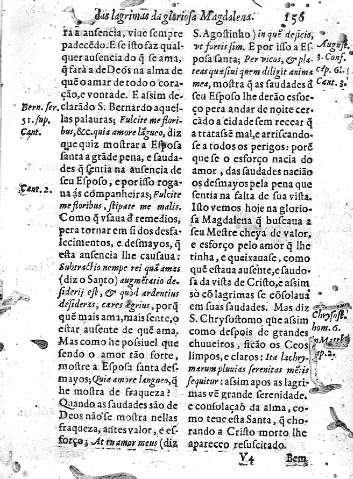 das lagrimas da gloriosa Magdalena. 156
rá a ausencia, viue sempre
padecēdo. E se isto faz qual-
quer ausencia do q̃ se ama,
q̃ fará a de Deos na alma de
quē o amar de todo o cora-
ção, e vontade. E assim de-
clarádo S. Bernardo aquel-
las palauras; Fulcite me flori-
bus, &c. quia amore lãgueo, diz
que quiz mostrar a Esposa
santa a grãde pena, e sauda-
des q̃ sentia na ausencia de
seu Esposo, e por isso roga-
ua ás companheiras; Fulcite
me floribus, stipate me malis.
Como q̃ vsaua d' remedios,
pera tornar em si dos desfa-
lecimentos, e desmayos, q̃
esta ausencia lhe causaua:
Subtractio nempe rei quã amas
(diz o Santo) augmētatio de-
siderij est, & quod ardentius
desideras, cares ægrius, porq̃
quē mais ama, mais sente, o
estar ausente de quē ama.
Mas como he possiuel que
sendo o amor tão forte,
mostre a Esposa santa des-
mayos; Quia amore langueo, q̃
he mostra de fraqueza?
Quando as saudades são de
Deos não se mostra nellas
fraqueza, antes valor, e es-
forço; At in amor meus (diz
Bern. ser.
51. sup.
Cant.
Cant. 2.
S. Agostinho) in quē deficio,
vt fortis sim. E por isso a Es-
posa santa; Per vicos, & pla-
teas quæsiui quem diligit anima
mea, mostra q̃ as saudades d'
seu Esposo lhe derão esfor-
ço pera andar de noite cer-
cãdo a cidade sem recear q̃
a tratassē mal, e arriscando-
se a todos os perigos: porē
que se o esforço nacia do
amor, das saudades nacião
os desmayos pela pena que
sentia na falta de sua vista.
Isto vemos hoje na glorio-
sa Magdalena q̃ buscaua a
seu Mestre cheya de valor,
e esforço pelo amor q̃ lhe
tinha, e queixauase, como
que estaua ausente, e saudo-
sa da vista de Christo, e assim
só cõ lagrimas se cõsolaua
em suas saudades. Mas diz
S. Chrysostomo que assim
como despois de grandes
chueiros, ficão os Ceos
limpos, e claros: Ita lachry-
marum pluuias serenitas mētis
sequitur: assim apos as lagri-
mas vē grande serenidade,
e consolação da alma, co-
mo teue esta Santa, q̃ cho-
rando a Christo morto lhe
apareceo resuscitado.
August.
3. Conf.
cap. 6.
Cant. 3.
Chrysost.
hom. 6.
in Matth.
cap. 2.
V4 Bem